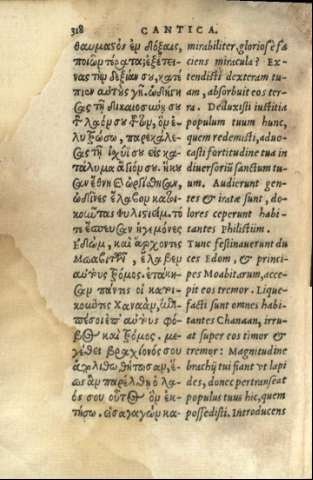 318 CANTICA.
θαυμαςὸν ἐν δόξαις,
ποιῶν τέρατα; ἐξέτει-
νας τὴν δεξιάν σου, κατέ
πιεν αὐτοὺς γῆ. ὡδήγη
σας τῇ δικαιοσύνῃ σου
τὸν λαόν σου τοῦτον, ὃν ἐ-
λυτρώσω, παρεκάλε-
σας τῇ ἰσχύϊ σου εἰς κα-
τάλυμα ἅγιόν σου. ἤκου
σαν ἔθνη καὶ ὠργίσθησαν,
ὠδῖνες ἔλαβον κατοι-
κοῦντας Φυλιςιείμ. τό
τε ἔσπευσαν ἡγεμόνες
Ἐδώμ, καὶ ἄρχοντες
Μωαβιτῶν, ἔλαβεν
αὐτοὺς τρόμος. ἐτάκη-
σαν πάντες οἱ κατοι-
κοῦντες Χαναάν, ἐπι-
πέσοι ἐπ' αὐτοὺς φό-
βος καὶ τρόμος. με-
γέθει βραχίονός σου
ἀπολιθωθήτωσαν, ἕ-
ως ἂν παρέλθῃ ὁ λα-
ός σου οὗτος ὃν ἐκ-
τήσω. εἰσαγαγὼν κα-
mirabiliter, gloriose fa
ciens miracula? Ex-
tendisti dexteram tu-
am, absorbuit eos ter-
ra. Deduxisti iustitia
populum tuum hunc,
quem redemisti, aduo-
casti fortitudine tua in
diuersoriũ sanctum tu-
um. Audierunt gen-
tes & iratæ sunt, do-
lores ceperunt habi-
tantes Philistiim.
Tunc festinauerunt du
ces Edom, & princi-
pes Moabitarum, acce-
pit eos tremor. Lique-
facti sunt omnes habi-
tantes Chanaan, irru-
at super eos timor &
tremor: Magnitudine
brachij tui fiant vt lapi
des, donec pertranseat
populus tuus hic, quem
possedisti. Introducens